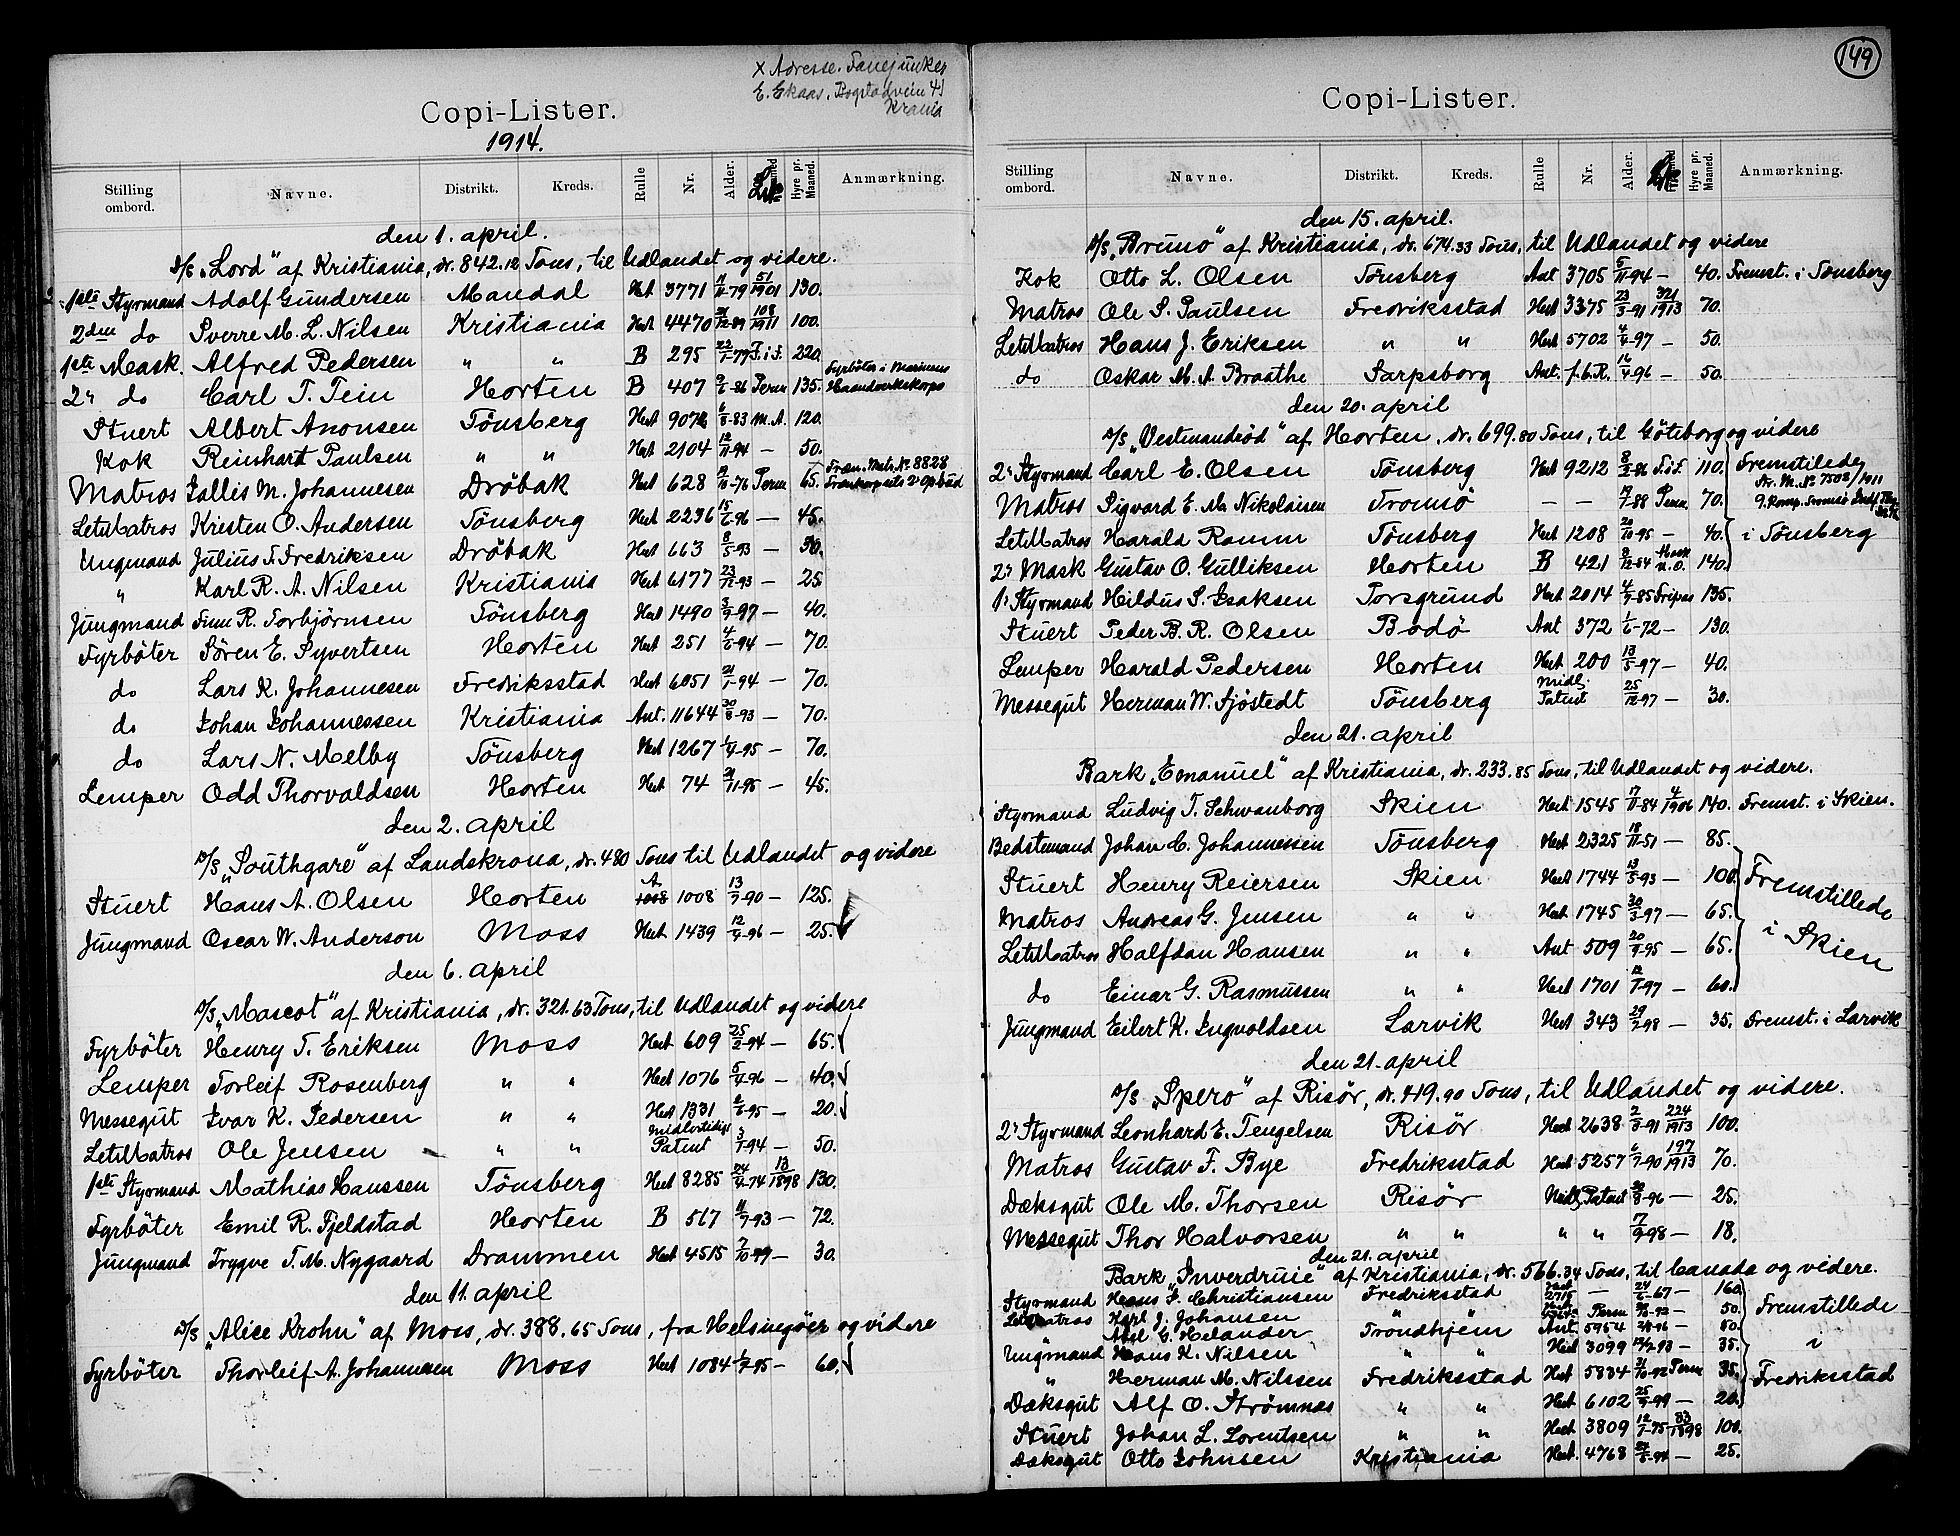 x Adresse. Fanejunker
E. Ekaas, Bogstadveien 41
Krania
Copi-Lister.
1914.
Stilling ombord. Navne. Distrikt. Kreds. Rulle Nr. Alder. Hyre pr. Maaned. Anmærkning.
den 1. april.
D/S „Lord" af Kristiania, dr. 842.12 Tons, til Udlandet og videre.
1ste Styrmand Adolf Gundersen Mandal Hvt 3771 11/11-79 51/1901 130.
2den do Sverre M. L. Nilsen Kristiania Hvt 4470 /12-89 108/1911 100.
1ste Mask. Alfred Pedersen " " B 295 22/1-77 F.i.F. 220.
2" do Carl T. Tein Horten B 407 9/6-86 Perm 135. Fyrböter i Marinens Haandverkskorps
Stuert Albert Anonsen Tönsberg Hvt 9072 6/8-83 M.A. 120.
Kok Reinhart Paulsen " " Hvt 2104 12/11-94 — 50.
Matros Jallis M. Johannesen Dröbak Hvt 628 12/10-76 Perm 65. Fræn. Matr. No 8828
LetMatros Kristen O. Andersen Tönsberg Hvt 2236 15/6-96 — 45.
Ungmand Julius F. Fredriksen Dröbak Hvt 663 8/5-93 — 30.
" Karl R. A. Nilsen Kristiania Hvt 6177 23/12-93 — 25
Jungmand Finn R. Torbjörnsen Tönsberg Hvt 1490 3/9-97 — 40.
Fyrböter Sören E. Syvertsen Horten Hvt 251 4/6-94 — 70.
do Lars K. Johannesen Fredriksstad Hvt 6051 21/1-94 — 70.
do Johan Johannessen Kristiania Ant. 11644 30/8-93 — 70.
do Lars N. Melby Tönsberg Hvt 1267 1/4-95 — 70.
Lemper Odd Thorvaldsen Horten Hvt 74 21/11-95 — 45.
den 2. april
D/S „Southgare" af Landskrona, dr. 480 Tons til Udlandet og videre
Stuert Hans A. Olsen Horten A 1008 13/7-90 — 125.
Jungmand Oscar W. Anderson Moss Hvt 1439 12/4-96 — 25.
den 6. april
D/S „Mascot" af Kristiania, dr. 321.63 Tons, til Udlandet og videre
Fyrböter Henry T. Eriksen Moss Hvt 609 25/2-94 — 65.
Lemper Torleif Rosenberg " " Hvt 1076 5/4-96 — 40.
Messegut Ivar K. Pedersen " " Hvt 1331 2/6-95 — 20.
LetMatros Ole Jensen " " Midlertidigt Patent 3/7-94 — 50.
1ste Styrmand Mathias Hanssen Tönsberg Hvt 8285 24/4-74 13/1898 130.
Fyrböter Emil R. Fjeldstad Horten B 567 11/7-93 — 72.
Jungmand Trygve T. M. Nygaard Drammen Hvt 4515 7/10-99 — 30.
den 11. april
D/S „Alice Krohn" af Moss, dr. 388.65 Tons, fra Helsingöer og videre
Fyrböter Thorleif A. Johannesen Moss Hvt 1084 1/7-95 — 60.
149
Copi-Lister.
Stilling ombord. Navne. Distrikt. Kreds. Rulle Nr. Alder. Hyre pr. Maaned. Anmærkning.
den 15. april.
D/S „Bruno" af Kristiania, dr. 674.33 Tons, til Udlandet og videre
Kok Otto L. Olsen Tönsberg Ant 3705 5/11-94 — 40. Fremst. i Tönsberg
Matros Ole S. Paulsen Fredriksstad Hvt 3375 23/3-91 321/1913 70.
LetMatros Hans J. Eriksen " " Hvt 5702 4/4-97 — 50.
do Oskar M. A. Braathe Sarpsborg Ant. f.b.R. 16/4-96 — 50.
den 20. april
D/S „Vestmandröd" af Horten, dr. 699.80 Tons, til Göteborg og videre
2" Styrmand Carl E. Olsen Tönsberg Hvt 9212 8/3-86 F.i.F. 110. Fremstillede
Matros Sigvard E. M. Nikolaisen Tromsö — — 19/7-88 Perm. 70. Nr. M. No 7502/1911
LetMatros Harald Ramm Tönsberg Hvt 1208 20/10-95 — 40. i Tönsberg
2" Mask Gustav O. Gulliksen Horten B 421 8/12-84 Mask U.O. 140.
1" Styrmand Hildus S. Isaksen Porsgrund Hvt 2014 4/7-85 Fripas 135.
Stuert Peder B. R. Olsen Bodö Ant 372 1/6-72 — 130.
Lemper Harald Pedersen Horten Hvt 200 13/5-97 — 40.
Messegut Herman W. Sjöstedt Tönsberg Midl. Patent 25/12-97 — 30.
den 21. april
Bark „Emanuel" af Kristiania, dr. 233.85 Tons, til Udlandet og videre.
Styrmand Ludvig T. Schwanborg Skien Hvt 1545 17/11-84 4/1906 140. Fremst. i Skien.
Bedstemand Johan C. Johannessen Tönsberg Hvt 2325 18/11-51 — 85.
Stuert Henry Reiersen Skien Hvt 1744 13/5-93 — 100. Fremstillede
Matros Andreas G. Jensen " " Hvt 1745 30/3-97 — 65.
LetMatros Halfdan Hansen " " Ant 509 20/9-95 — 65. i Skien
do Einar G. Rasmussen " " Hvt 1701 12/7-97 — 60.
Jungmand Eilert K. Ingvoldsen Larvik Hvt 343 29/7-98 — 35. Fremst. i Larvik
den 21. april
D/S „Spero" af Risör, dr. 419.90 Tons, til Udlandet og videre.
2" Styrmand Leonhard E. Tengelsen Risör Hvt 2638 2/3-91 224/1913 100.
Matros Gustav F. Bye Fredriksstad Hvt 5257 6/7-90 197/1913 70.
Dæksgut Ole M. Thorsen Risör Midl. Patent 30/8-96 — 25.
Messegut Thor Halvorsen " " " " 7/9-98 — 18.
den 21. april
Bark „Inverdruie" af Kristiania, dr. 566.34 Tons, til Canada og videre.
Styrmand Hans F. Christiansen Fredriksstad Hvt 2715 — 24/6-67 — 160.
LetMatros Karl J. Johansen " " Perm — 50. Fremstillede
Axel G. Helander Trondhjem Ant. 5954 — 50.
Ungmand Hans K. Nilsen " " Hvt 3099 — 35. i
" Herman M. Nilssen Fredriksstad Hvt 5834 31/10-92 Perm 35. Fredriksstad
Dæksgut Alf O. Strömnæs " " Hvt 6102 25/5-99 — 20.
Stuert Johan L. Lorentsen " " Hvt 3809 12/7-75 83/1898 100.
Dæksgut Otto Johnsen Kristiania Hvt. 4768 — 25.